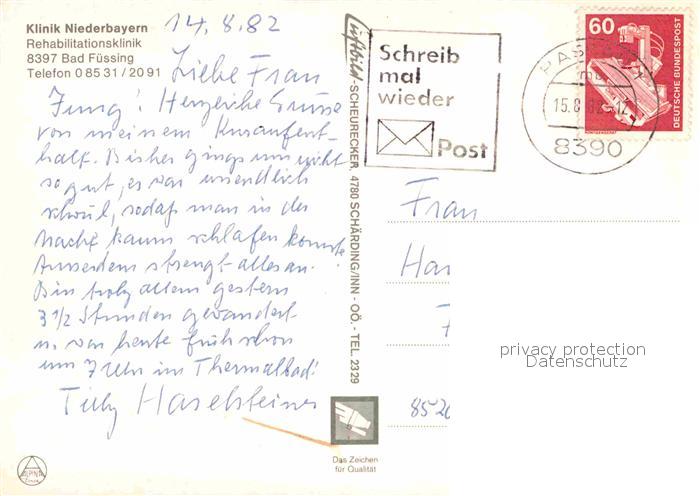 Klinik Niederbayern
Rehabilitationsklinik
8397 Bad Füssing
Telefon 0 85 31 / 20 91
14.8.82
Liebe Frau
Jung! Herzliche Grüsse
von meinem Kuraufent-
halt. Bisher gings mir nicht
so gut, es war unendlich
schwül, sodaß man in der
Nacht kaum schlafen konnte.
Ausserdem strengt alles an.
Bin trotz allem gestern
3 1/2 Stunden gewandert
u. war heute früh schon
um 7 Uhr im Thermalbad!
Tilly Haselsteiner
Luftbild-SCHEURECKER, 4780 SCHÄRDING/INN - OÖ. - TEL. 2329
Schreib
mal
wieder
Post
PASS
15.8.82-12
8390
60
DEUTSCHE BUNDESPOST
Frau
Has
852
privacy protection
Datenschutz
Das Zeichen
für Qualität
ALPINA